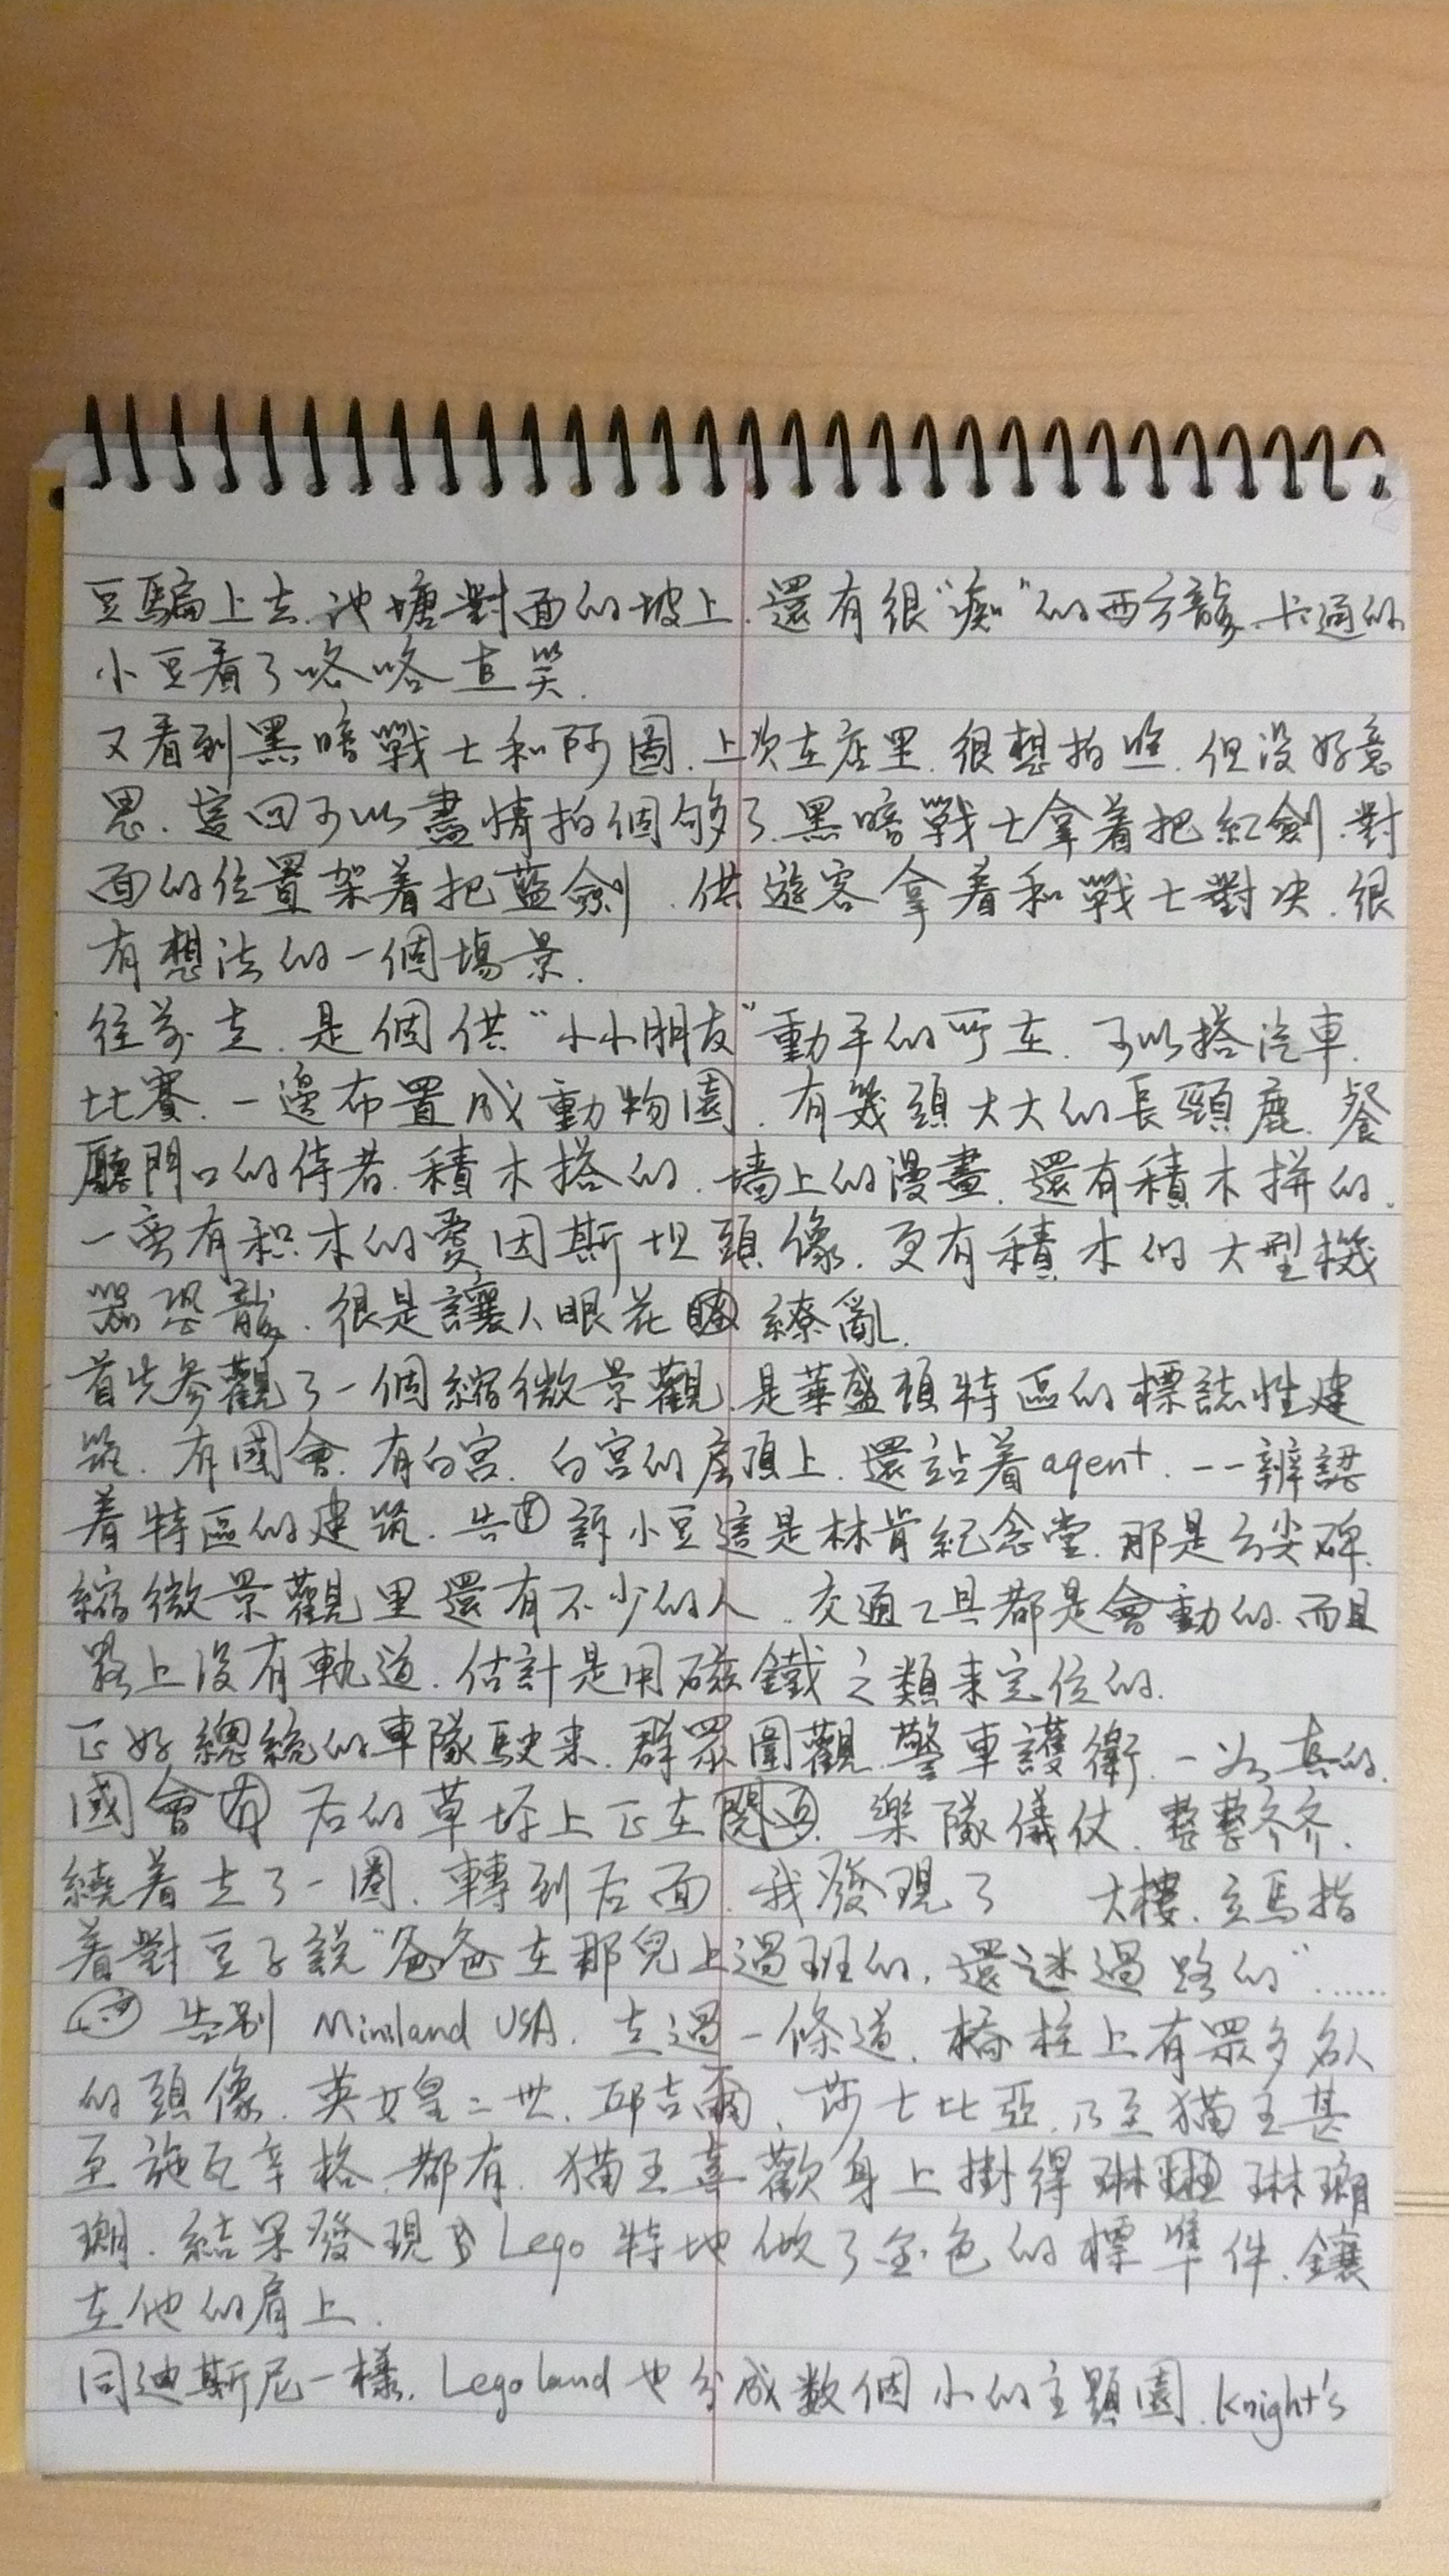 豆騙上去.池塘對面的坡上.還有很"痴"的西方龍.卡通的
小豆看了咯咯直笑.
又看到黑暗戰士和阿圖.上次在店里.很想拍照.但沒好意
思.這回可以盡情拍個够了.黑暗戰士拿着把紅劍.對
面的位置架着把藍劍.供遊客拿着和戰士對决.很
有想法的一個場景.
往前走.是個供"小小朋友"動手的所在.可以搭汽車.
比賽.一邊布置成動物園.有幾頭大大的長頸鹿.餐
廳門口的侍者.積木搭的.墻上的漫畫.還有積木拼的.
一旁有积木的愛因斯坦頭像.更有積木的大型機
器恐龍.很是讓人眼花繚亂.
首先參觀了一個縮微景觀.是華盛頓特區的標誌性建
筑.有國會.有白宫.白宫的房頂上.還站着agent.一一辨認
着特區的建筑.告訴小豆這是林肯紀念堂.那是方尖碑.
縮微景觀里還有不少的人.交通工具都是會動的.而且
路上沒有軌道.估計是用磁鐵之類来定位的.
正好總統的車隊駛来.群眾圍觀.警車護衛.一如真的.
國會右的草坪上正在.樂隊儀仗.整整齐齐.
繞着走了一圈.轉到后面.我發現了 大樓.立馬指
着對豆子說"爸爸在那兒上過班的,還迷過路的"......
告别 Miniland USA.走過一條道.橋柱上有眾多名人
的頭像.英女皇二世.邱吉爾、莎士比亞.乃至猫王甚
至施瓦辛格.都有.猫王喜歡身上掛得琳琳瑯
瑯.結果發現Lego特地做了金色的標準件.鑲
在他的肩上.
同迪斯尼一樣.Legoland也分成数個小的主題園.Knight's